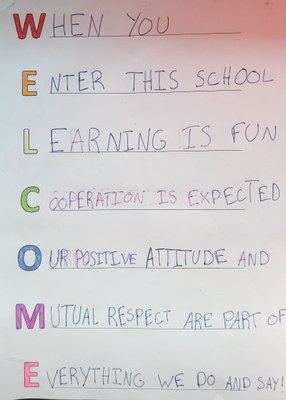 WHEN YOU
ENTER THIS SCHOOL
LEARNING IS FUN
COOPERATION IS EXPECTED
OUR POSITIVE ATTITUDE AND
MUTUAL RESPECT ARE PART OF
EVERYTHING WE DO AND SAY!